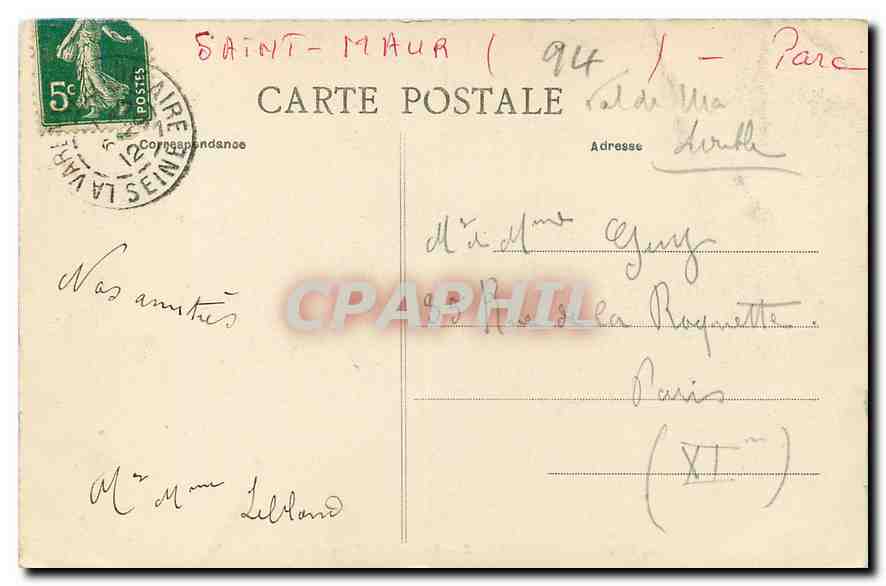 SAINT-MAUR ( 94 ) - Parc
5c
POSTES
LA VARENNE
SEINE
CARTE POSTALE
Val de Ma
Correspondance
Adresse
Mr & Mme
Nos amitiés
CPAPHIL
Rue de la Roquette.
Paris
(XIme)
Mr Mme Leblond